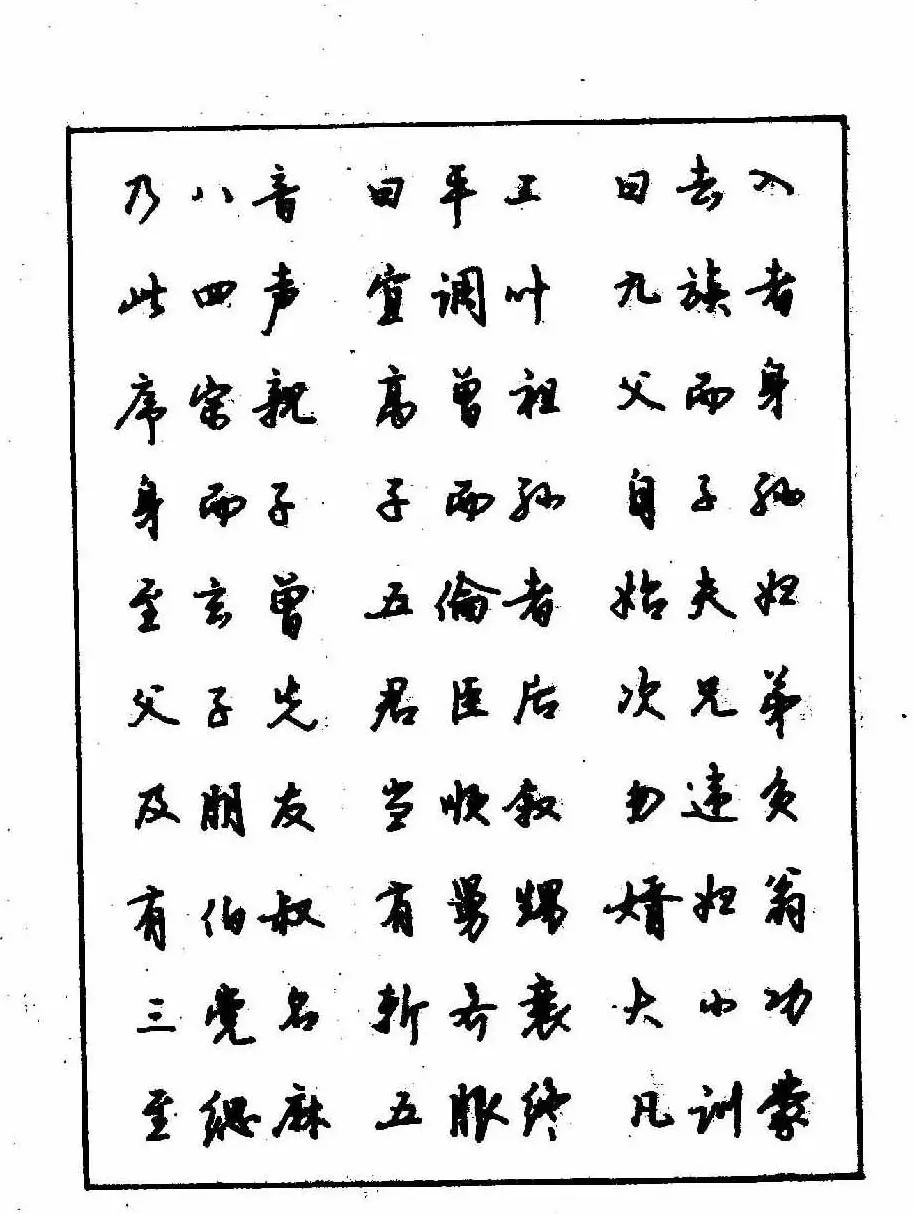 乃八音 曰平上 曰去入
此四声 宜调叶 九族者
序宗亲 高曾祖 父而身
身而子 子而孙 自子孙
至玄曾 五倫者 始夫妇
父子先 君臣后 次兄弟
及朋友 当顺叙 勿违负
有伯叔 有舅甥 婿妇翁
三党名 斩齐衰 大小功
至缌麻 五服终 凡训蒙